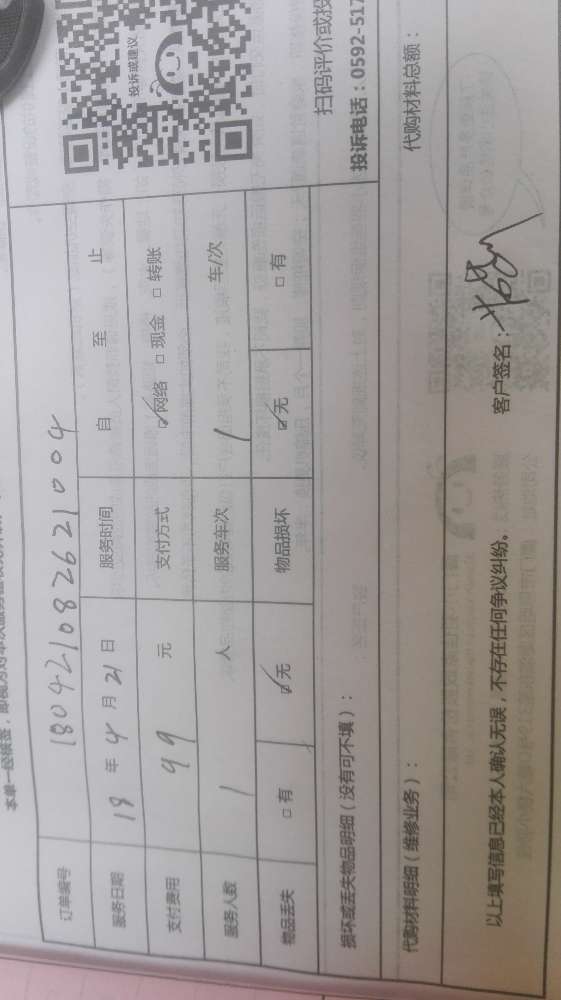 投诉或建议
扫码评价或投
投诉电话：0592-517
订单编号 180421082621004
服务日期 18 年 4 月 21 日 服务时间 自 至 止
支付费用 99 元 支付方式 ☑网络 □现金 □转账
服务人数 1 人 服务车次 1 车/次
物品丢失 □有 ☑无 物品损坏 ☑无 □有
损坏或丢失物品明细（没有可不填）：
代购材料明细（维修业务）： 代购材料总额：
以上填写信息已经本人确认无误，不存在任何争议纠纷。 客户签名：